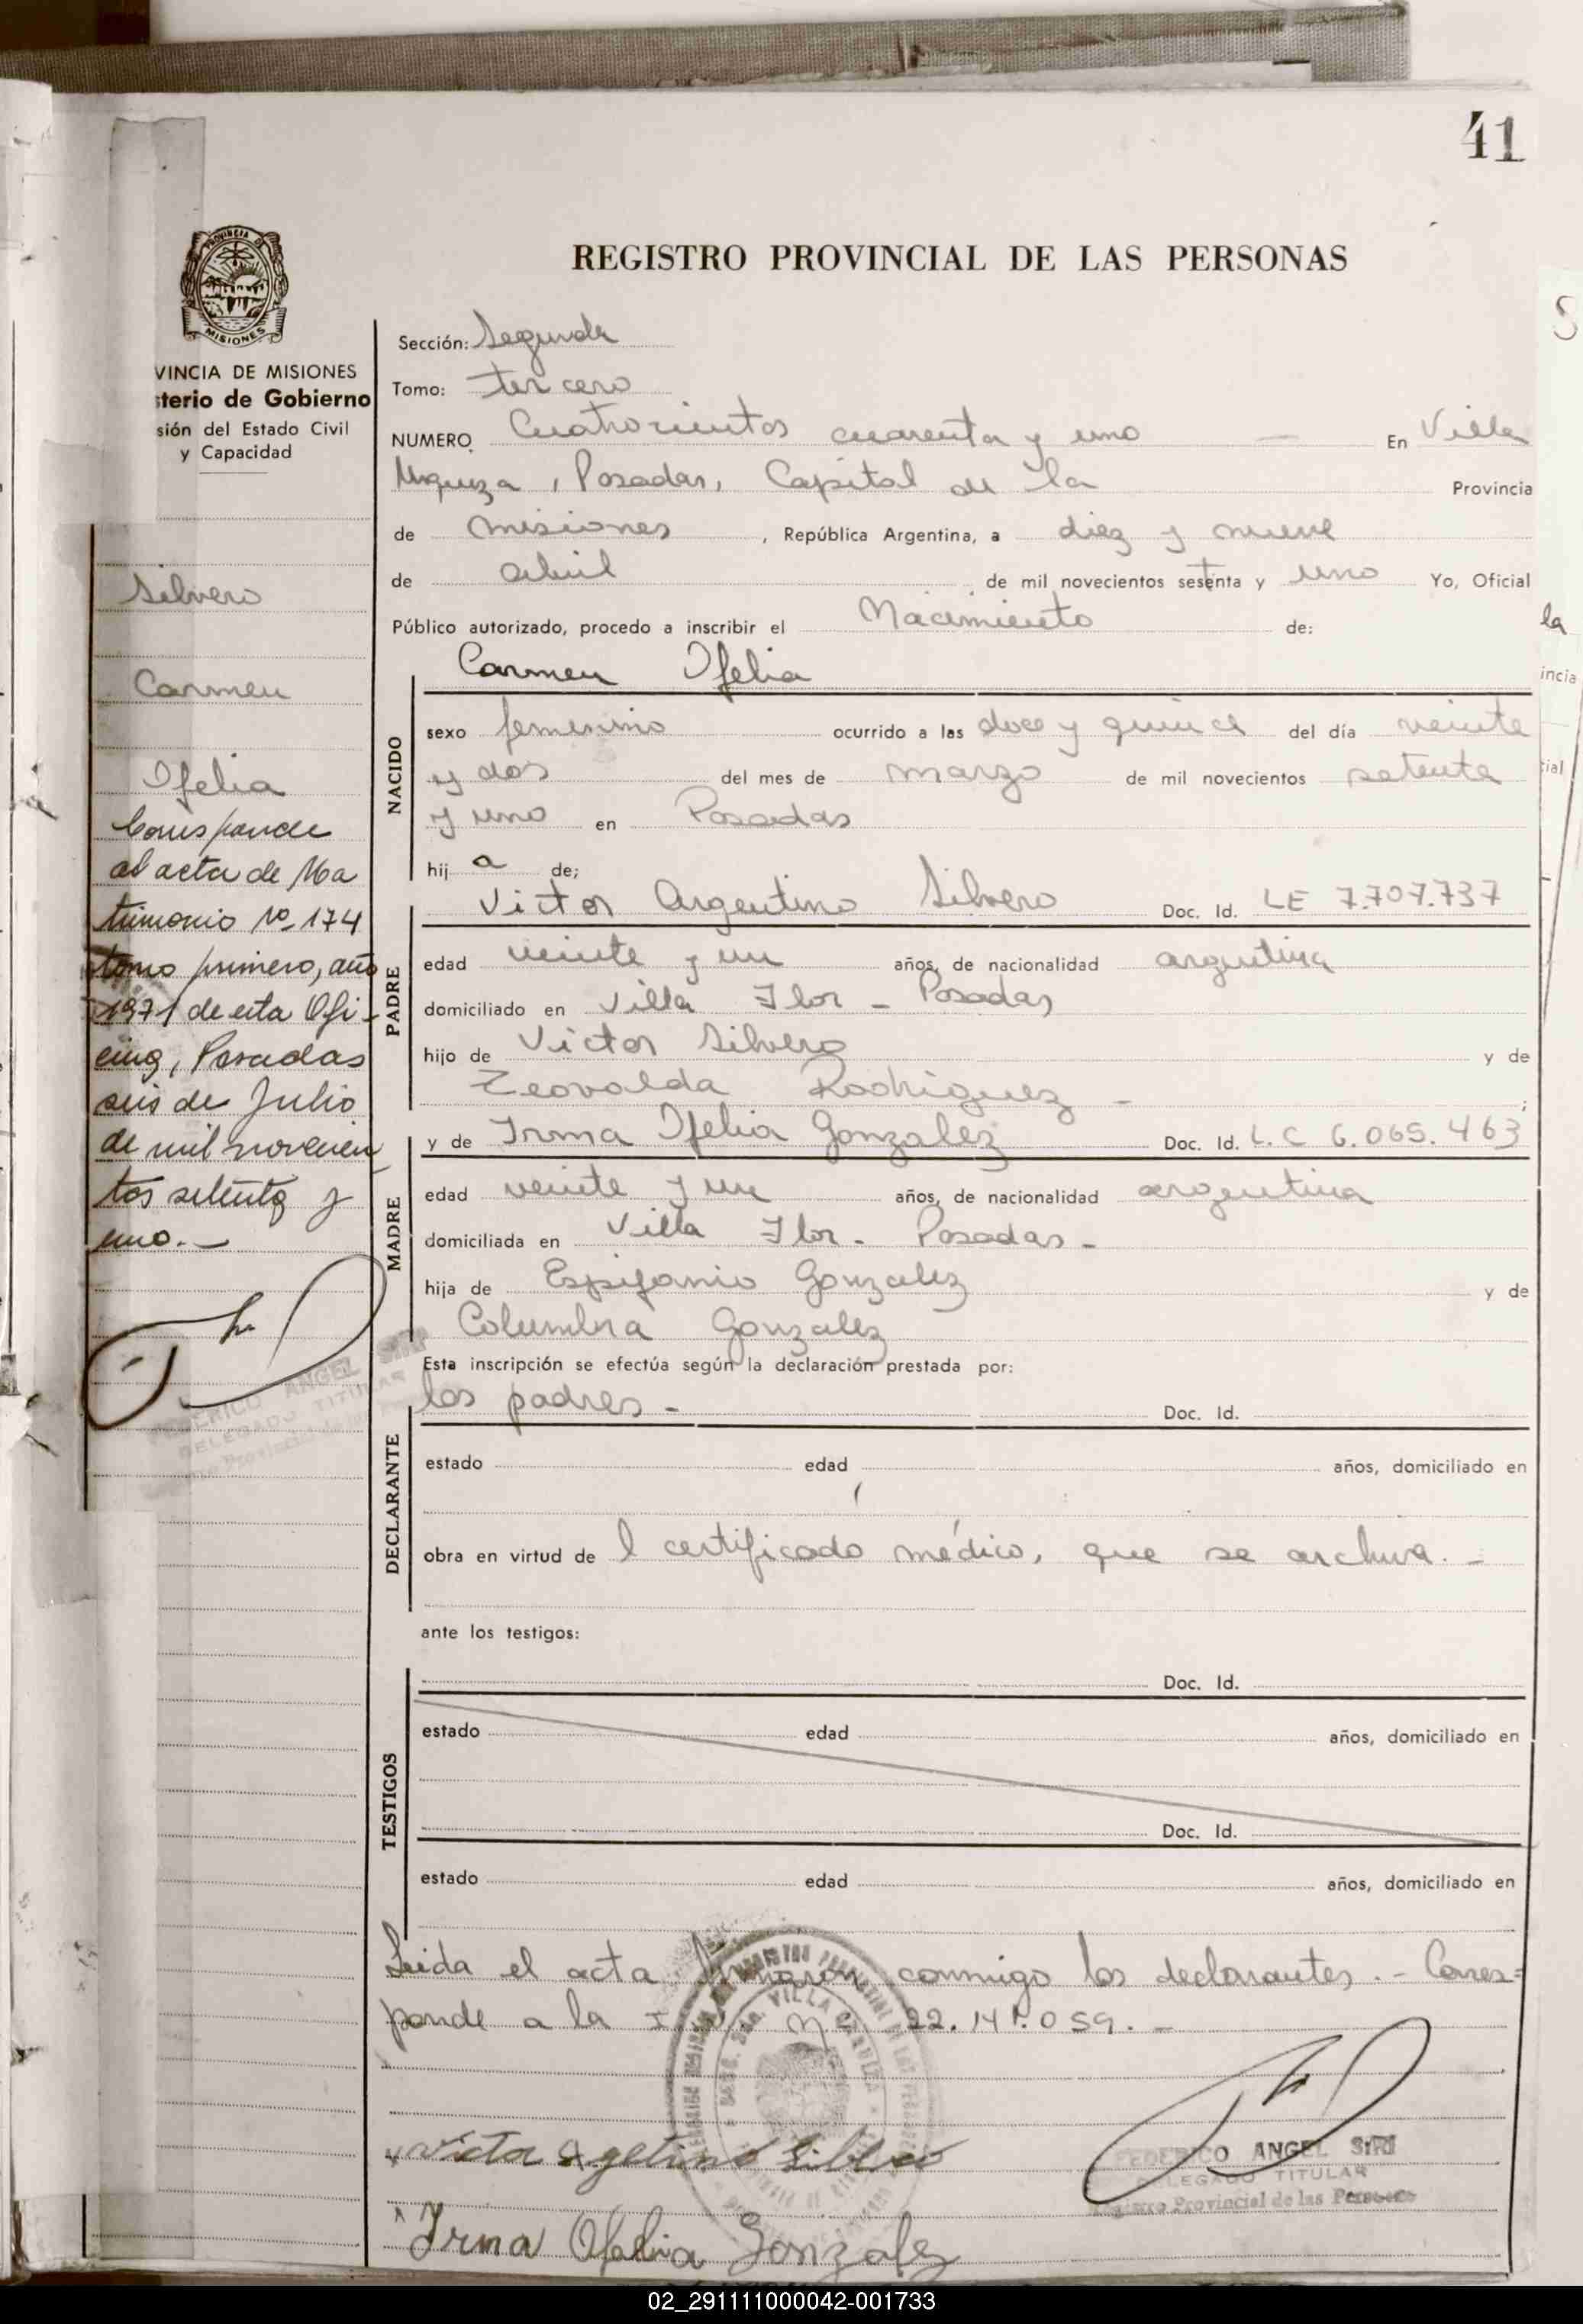 41
PROVINCIA DE
MISIONES
REGISTRO PROVINCIAL DE LAS PERSONAS
VINCIA DE MISIONES
sterio de Gobierno
sión del Estado Civil
y Capacidad
Silvero
Carmen
Ofelia
Corresponde
al acta de Ma
trimonio Nº 174
tomo primero, año
1971 de esta Ofi-
cina, Posadas
seis de Julio
de mil novecien
tos setenta y
uno.-
FEDERICO ANGEL SIRI
DELEGADO TITULAR
Sección: Segunda
Tomo: tercero
NUMERO Cuatrocientos cuarenta y uno — En Villa
Urquiza, Posadas, Capital de la Provincia
de Misiones, República Argentina, a diez y nueve
de abril de mil novecientos setenta y uno Yo, Oficial
Público autorizado, procedo a inscribir el Nacimiento de:
NACIDO
Carmen Ofelia
sexo femenino ocurrido a las doce y quince del día veinte
y dos del mes de marzo de mil novecientos setenta
y uno en Posadas
hija de;
PADRE
Victor Argentino Silvero Doc. Id. LE 7.707.737
edad veinte y un años, de nacionalidad argentina
domiciliado en Villa Flor - Posadas
hijo de Victor Silvero y de
Zeovalda Rodriguez - ;
MADRE
y de Irma Ofelia Gonzalez Doc. Id. L.C 6.065.463
edad veinte y un años, de nacionalidad argentina
domiciliada en Villa Flor - Posadas -
hija de Espifanio Gonzalez y de
Columbra Gonzalez
Esta inscripción se efectúa según la declaración prestada por:
DECLARANTE
los padres - Doc. Id.
estado edad años, domiciliado en
obra en virtud de l certificado médico, que se archiva. -
ante los testigos:
TESTIGOS
Doc. Id.
estado edad años, domiciliado en
Doc. Id.
estado edad años, domiciliado en
Leida el acta firmaron conmigo los declarantes. - Corres=
ponde a la 22.141.059. -
Victor Agetino Silbero
FEDERICO ANGEL SIRI
DELEGADO TITULAR
Registro Provincial de las Personas
Irma Ofelia Gonzalez
la
incia
cial
02_291111000042-001733